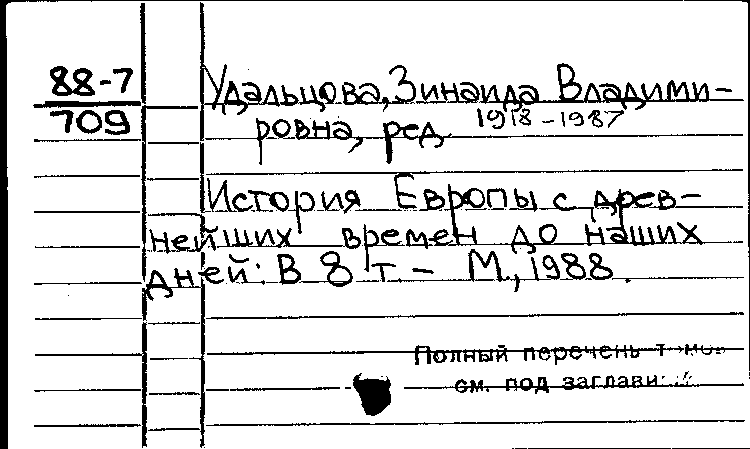 88-7
709
Удальцова, Зинаида Владими-
ровна, ред. 1918-1987
История Европы с древ-
нейших времен до наших
дней: В 8 т. - М., 1988.
Полный перечень томов
см. под заглавием